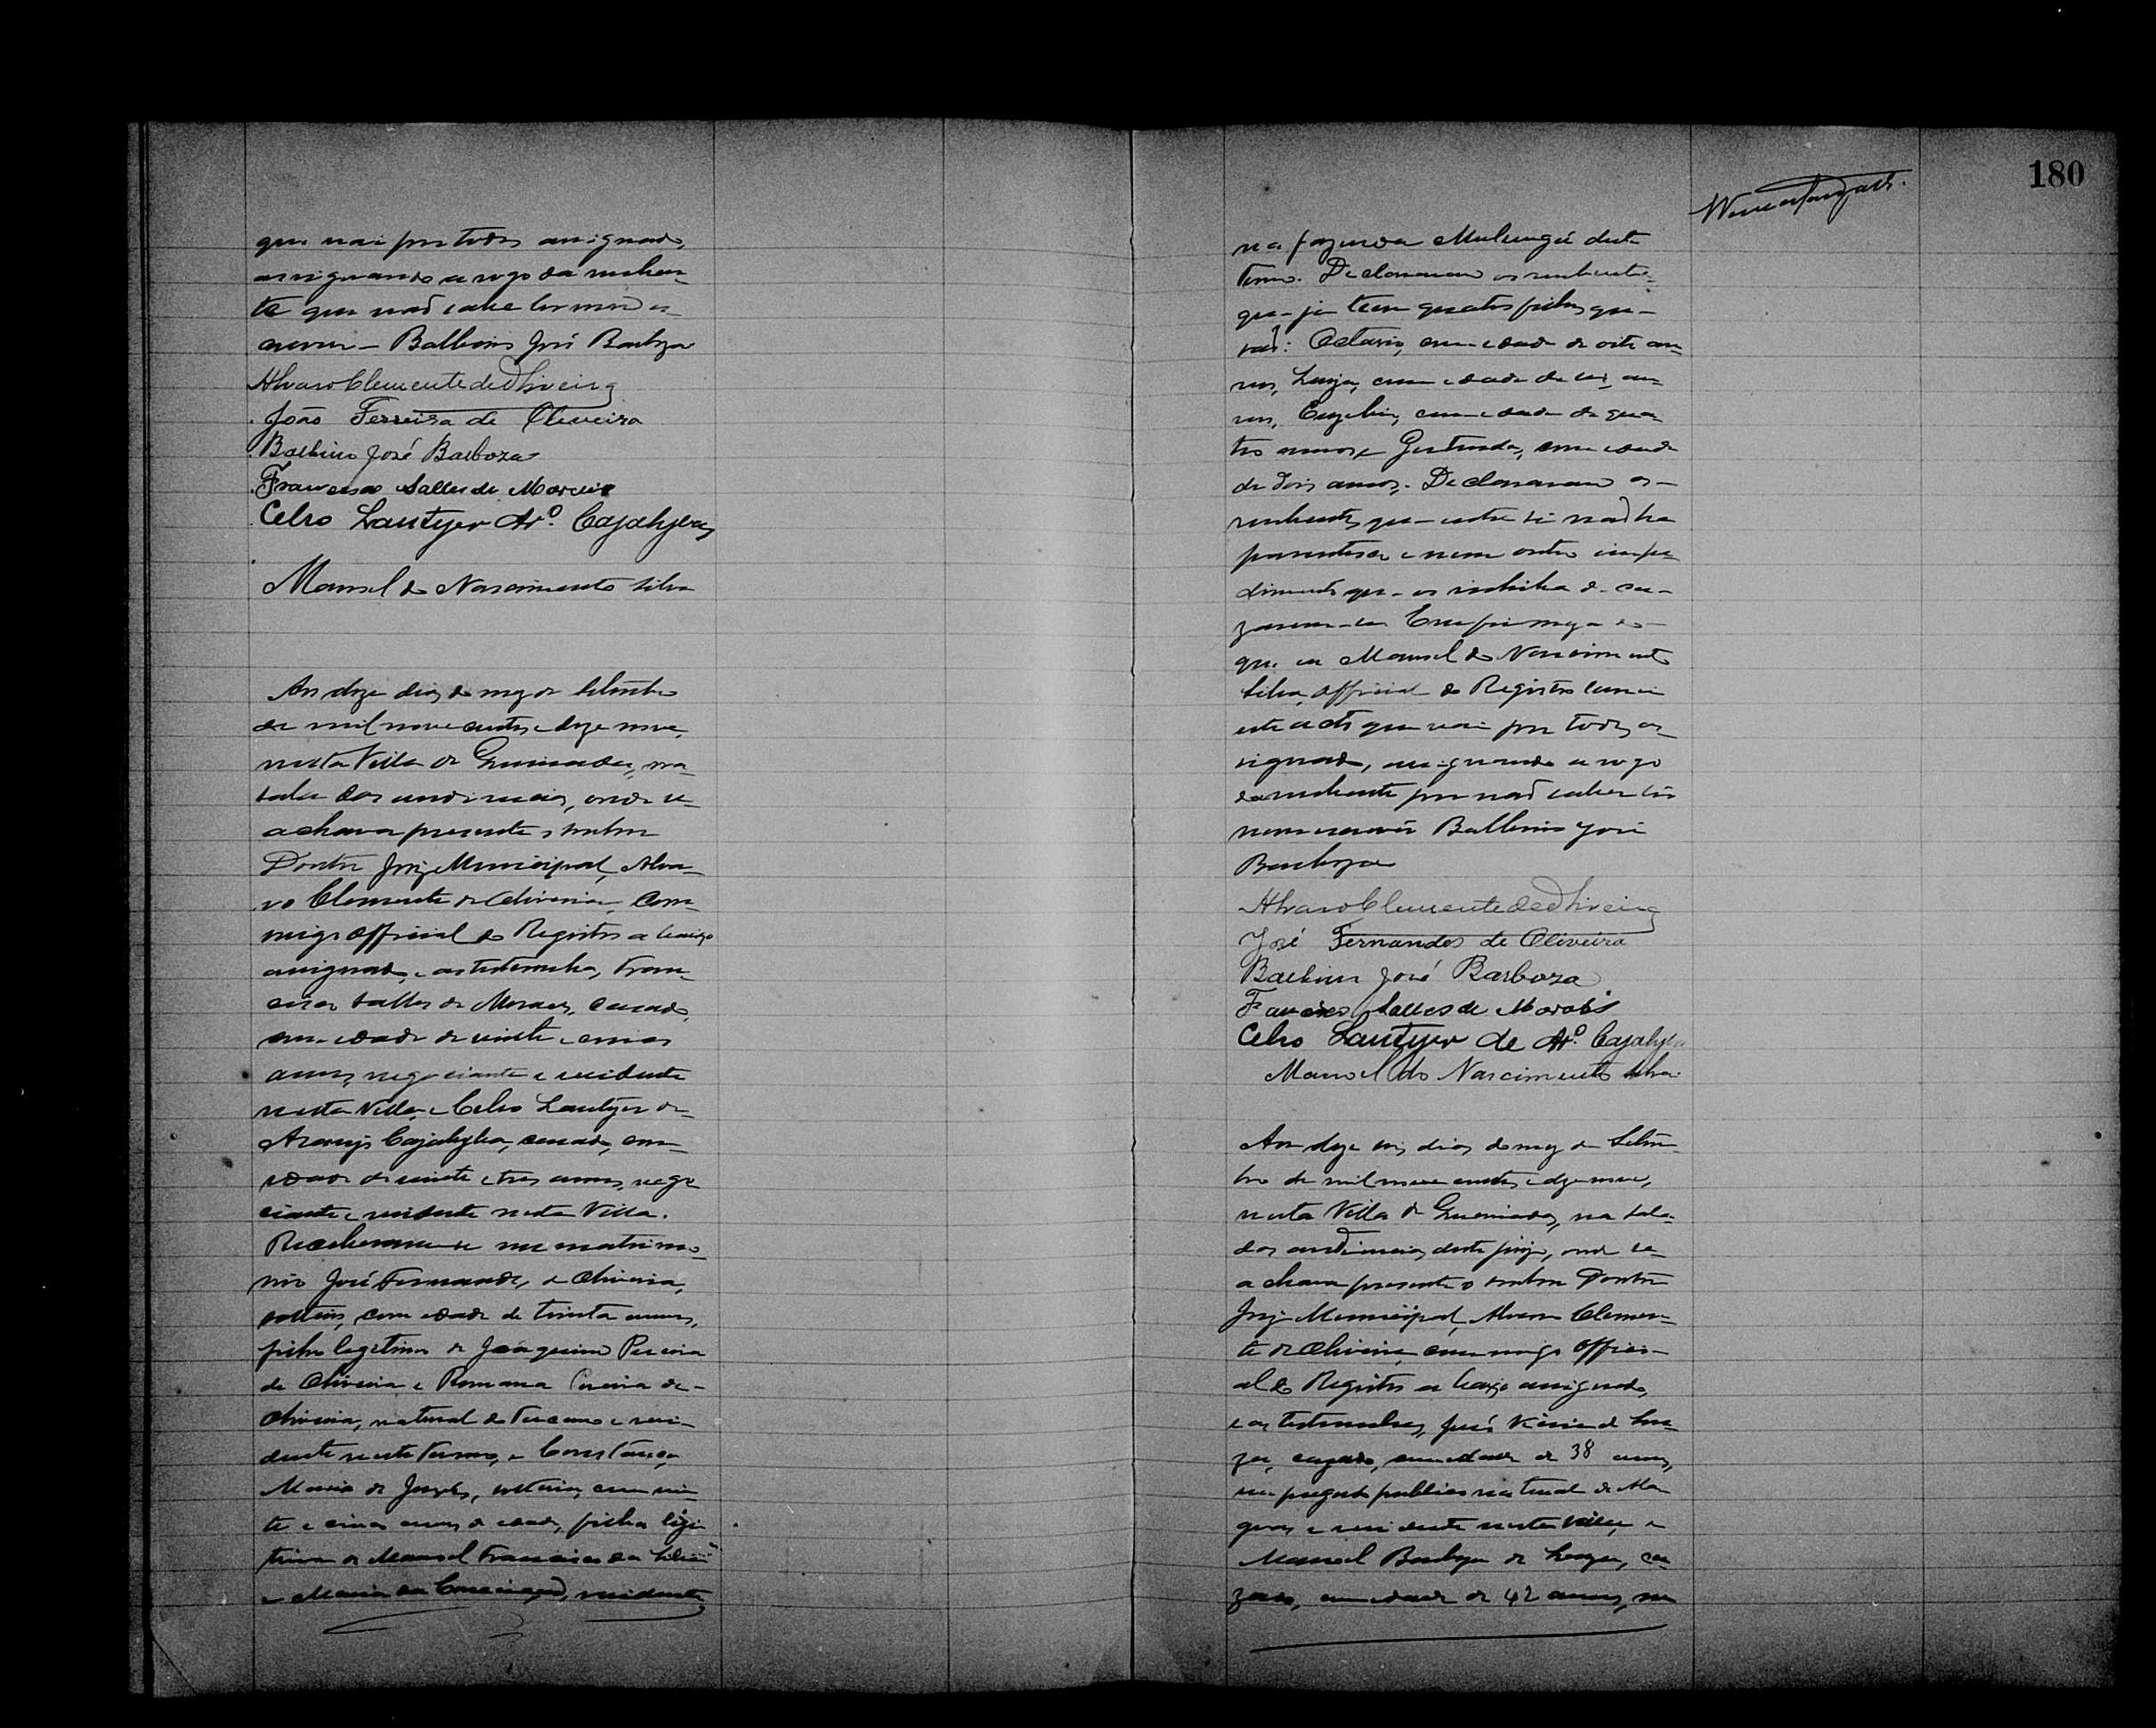 que vai por todos assignado,
assignando a rogo da nuben-
te que não sabe ler nem es-
crever – Balbino José Barboza
Alvaro Clemente de Oliveira
João Ferreira de Oliveira
Balbino José Barboza
Francisco Salles de Moraes
Celso Lantyer Ar.º Cajahyba
Manoel do Nascimento Silva
Aos doze dias do mez de Setembro
de mil nove centos e dezenove,
nesta Villa de Queimadas, na
sala das audiencias, onde se
achava presente o senhor
Doutor Juiz Municipal, Alva-
ro Clemente de Oliveira, com-
migo Official do Registro abaixo
assignado, e as testemunhas, Fran-
cisco Salles de Moraes, casado,
com edade de vinte e cinco
annos, negociante e residente
nesta Villa, e Celso Lantyer de
Araujo Cajahyba, casado, com
edade de vinte e tres annos, nego-
ciante e residente nesta Villa.
Receberam-se em matrimo-
nio José Fernandes de Oliveira,
solteiro, com edade de trinta annos,
filho legitimo de Joaquim Pereira
de Oliveira e Romana Pereira de
Oliveira, natural do Tucano e resi-
dente neste Termo, e Constança
Maria de Jesus, solteira, com vin-
te e cinco annos de edade, filha legi-
tima de Manoel Francisco da
e Maria da Conceição, residente
180
na fazenda Mulungú deste
Termo. Declararam os nubentes
que já tem quatro filhos que
são: Octavio, com edade de oito an-
nos, Luiza, com edade de seis an-
nos, Euzebio, com edade de qua-
tro annos e Gertrudes, com edade
de dois annos. Declararam os
nubentes que entre si não ha
parentesco e nem outro impe-
dimento que os inhiba de ca-
zarem-se. Em firmeza do
que eu Manoel do Nascimento
Silva, Official do Registro lavrei
este acto que vai por todos as-
signado, assignando a rogo
da nubente por não saber ler
nem escrever Balbino José
Barboza
Alvaro Clemente de Oliveira
José Fernandes de Oliveira
Balbino José Barboza
Francisco Salles de Moraes
Celso Lantyer de Ar.º Cajahyba
Manoel do Nascimento Silva
Aos dezeseis dias do mez de Setem-
bro de mil nove centos e dezenove,
nesta Villa de Queimadas, na sala
das audiencias deste juizo, onde se
achava presente o senhor Doutor
Juiz Municipal, Alvaro Clemen-
te de Oliveira, commigo Offici-
al do Registro abaixo assignado,
e as testemunhas, José de Sou-
za, cazado, com edade de 38 annos,
empregado publico natural de Ala-
goas e residente nesta Villa, e
Manoel Barboza de Souza, ca-
zado, com edade de 42 annos, ne